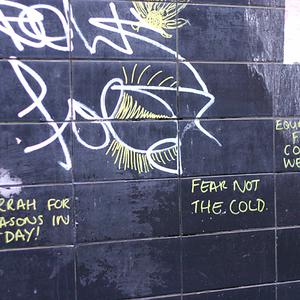 RRAH FOR
ASONS IN
DAY!
FEAR NOT
THE COLD.
EQU
F
CO
WE